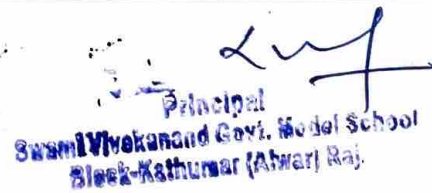 Principal
Swami Vivekanand Govt. Model School
Block-Kathumar (Alwar) Raj.